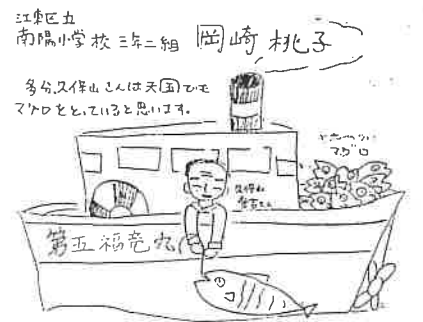 江東区立
南陽小学校 三年二組 岡崎桃子
多分、久保山さんは天国でも
マグロをとっていると思います。
久保山
愛吉さん
マグロ
第五福竜丸